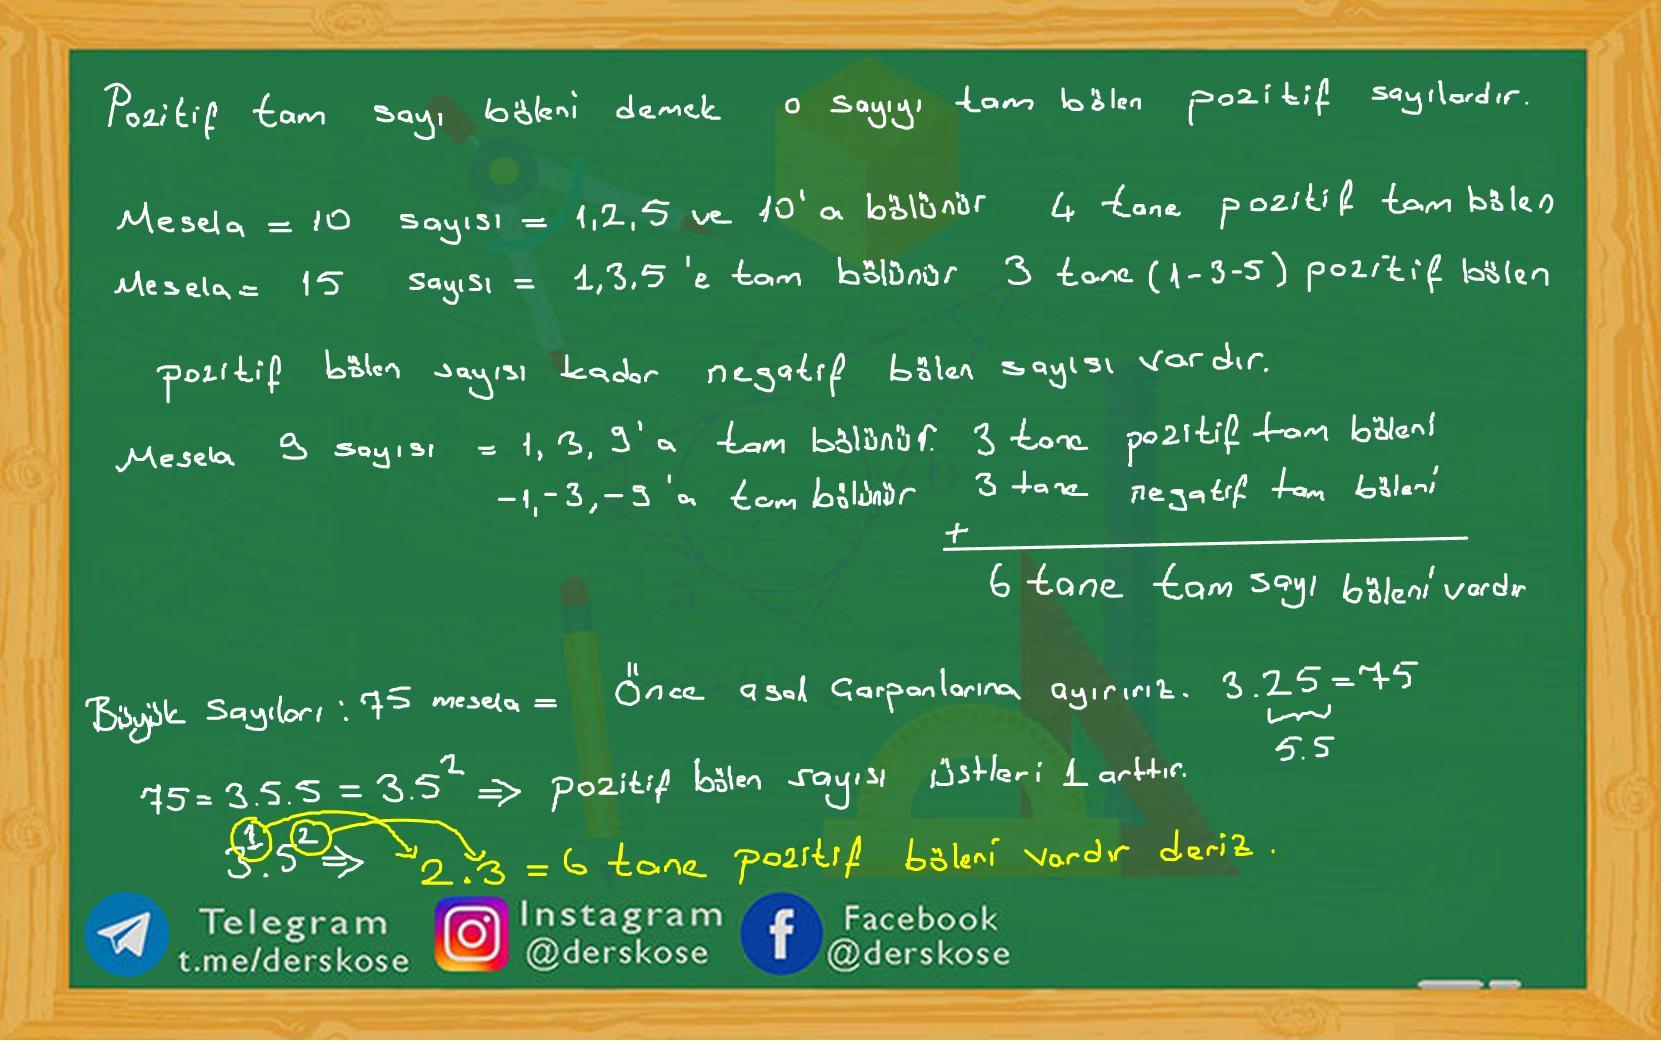 Pozitif tam sayı böleni demek o sayıyı tam bölen pozitif sayılardır.
Mesela = 10 sayısı = 1,2,5 ve 10'a bölünür 4 tane pozitif tam bölen
Mesela = 15 sayısı = 1,3,5'e tam bölünür 3 tane (1-3-5) pozitif bölen
pozitif bölen sayısı kadar negatif bölen sayısı vardır.
Mesela 9 sayısı = 1, 3, 9'a tam bölünür. 3 tane pozitif tam böleni
-1,-3,-9'a tam bölünür 3 tane negatif tam böleni
+
6 tane tam sayı böleni vardır
Büyük Sayıları : 75 mesela = Önce asal Çarpanlarına ayırırız. 3.25=75
5.5
75=3.5.5 = 3.5² ⇒ pozitif bölen sayısı üstleri 1 arttır.
3¹.5² ⇒ 2.3 = 6 tane pozitif böleni vardır deriz.
Telegram
t.me/derskose
Instagram
@derskose
Facebook
@derskose